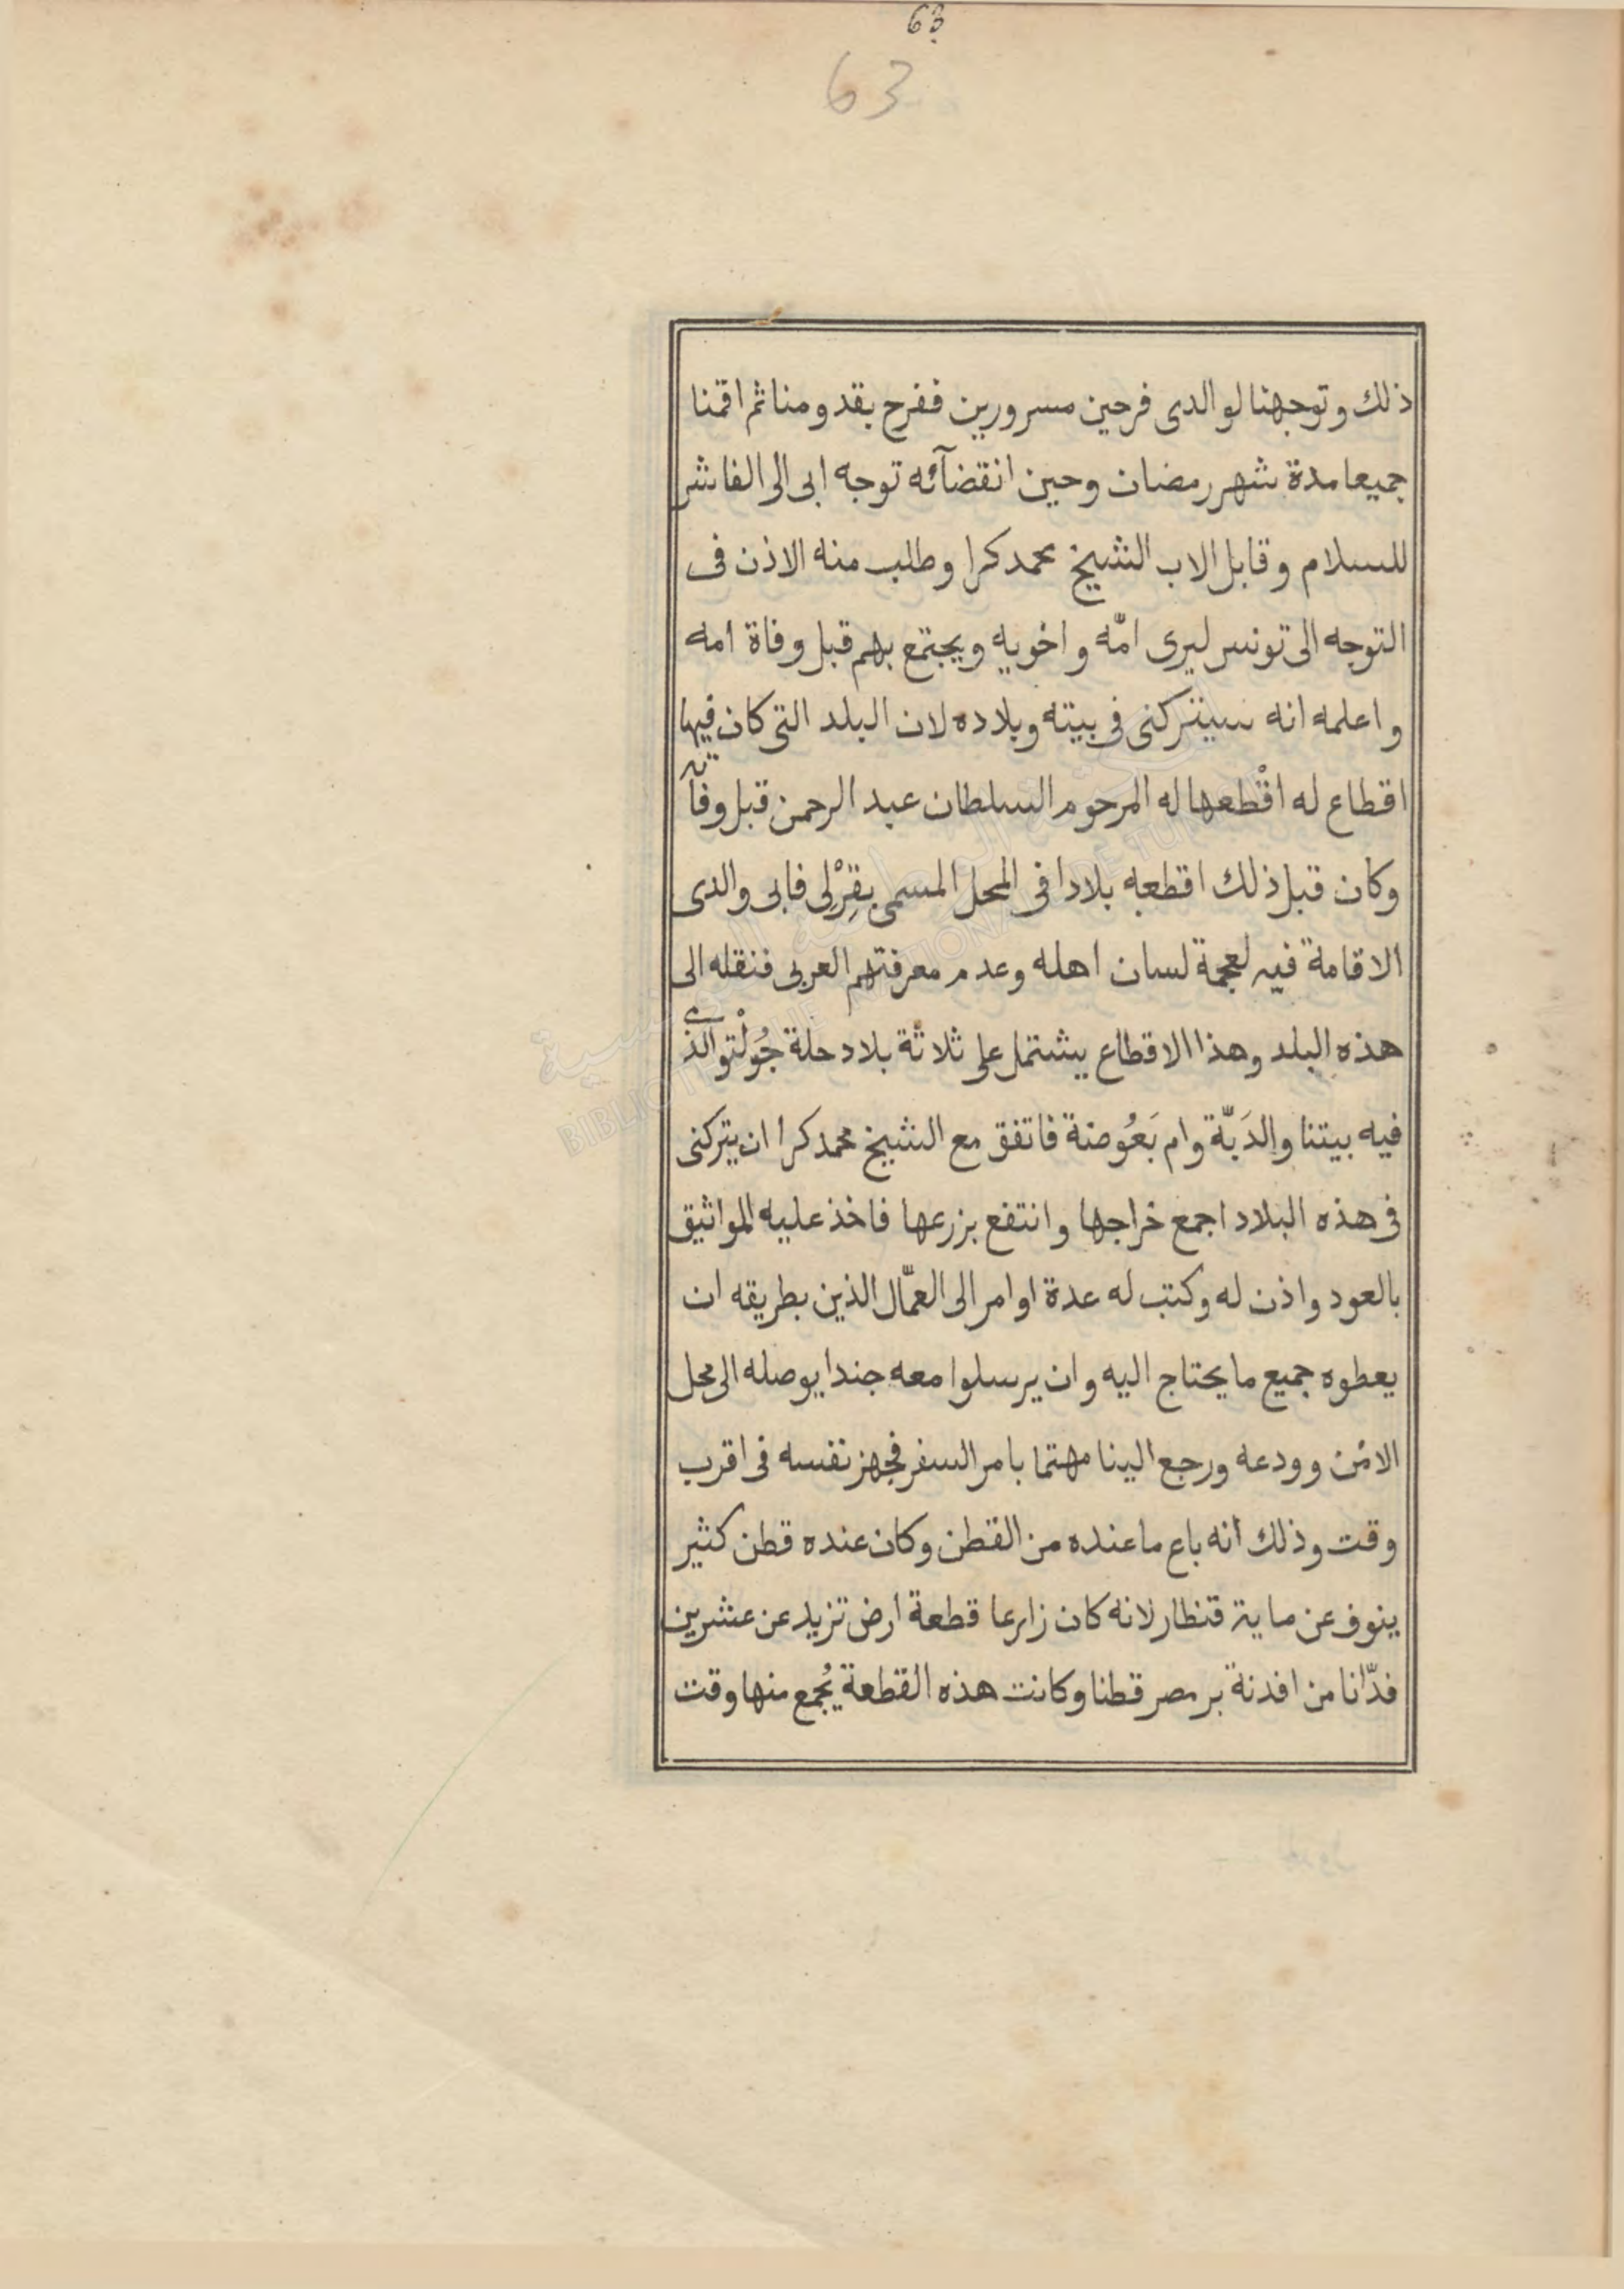 63
63
ذلك وتوجهنا لوالدى فرحين مسرورين ففرح بقدومنا ثم اقمنا
جميعا مدة شهر رمضان وحين انقضآئه توجه ابى الى الفاشر
للسلام وقابل الاب الشيخ محمد كرا وطلب منه الاذن فى
التوجه الى تونس ليرى امّه واخويه ويجتمع بهم قبل وفاة امه
واعلمه انه سيتركنى فى بيته وبلاده لان البلد التى كان فيها
اقطاع له اقْطعها له المرحوم السلطان عبد الرحمن قبل وفآته
وكان قبل ذلك اقطعه بلادا فى المحل المسمى بقِرْلِى فابى والدى
الاقامة فيه لعجمة لسان اهله وعدم معرفتهم العربى فنقله الى
هذه البلد وهذا الاقطاع يشتمل على ثلاثة بلاد حلة جُولْتو الذى
فيه بيتنا والدَبّة وام بَعُوضة فاتفق مع الشيخ محمد كرا ان يتركنى
فى هذه البلاد اجمع خراجها وانتفع بزرعها فاخذ عليه المواثيق
بالعود واذن له وكتب له عدة اوامر الى العمّال الذين بطريقه ان
يعطوه جميع ما يحتاج اليه وان يرسلوا معه جندا يوصله الى محل
الامن وودعه ورجع الينا مهتما بامر السفر فجهز نفسه فى اقرب
وقت وذلك انه باع ما عنده من القطن وكان عنده قطن كثير
ينوف عن ماية قنطار لانه كان زارعا قطعة ارض تزيد عن عشرين
فدّانا من افدنة بر مصر قطنا وكانت هذه القطعة يُجمع منها وقت